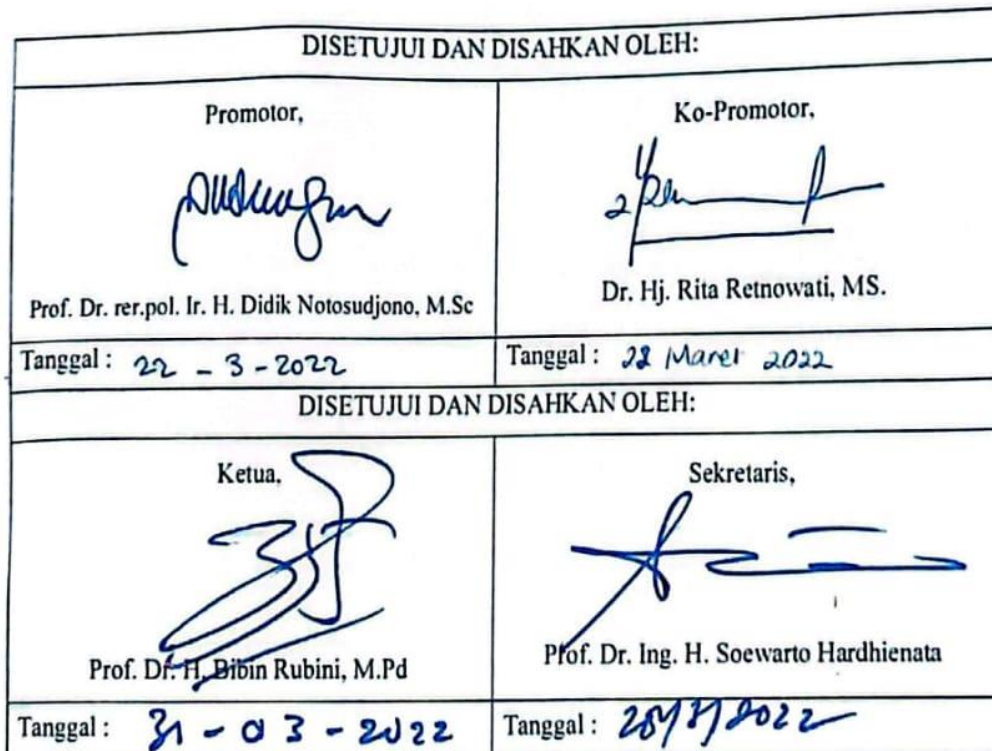 DISETUJUI DAN DISAHKAN OLEH:
Promotor,
Prof. Dr. rer.pol. Ir. H. Didik Notosudjono, M.Sc
Tanggal : 22 - 3 - 2022
Ko-Promotor,
Dr. Hj. Rita Retnowati, MS.
Tanggal : Maret 2022
DISETUJUI DAN DISAHKAN OLEH:
Ketua,
Prof. Dr. H. Bibin Rubini, M.Pd
Tanggal : 31 - 03 - 2022
Sekretaris,
Prof. Dr. Ing. H. Soewarto Hardhienata
Tanggal :